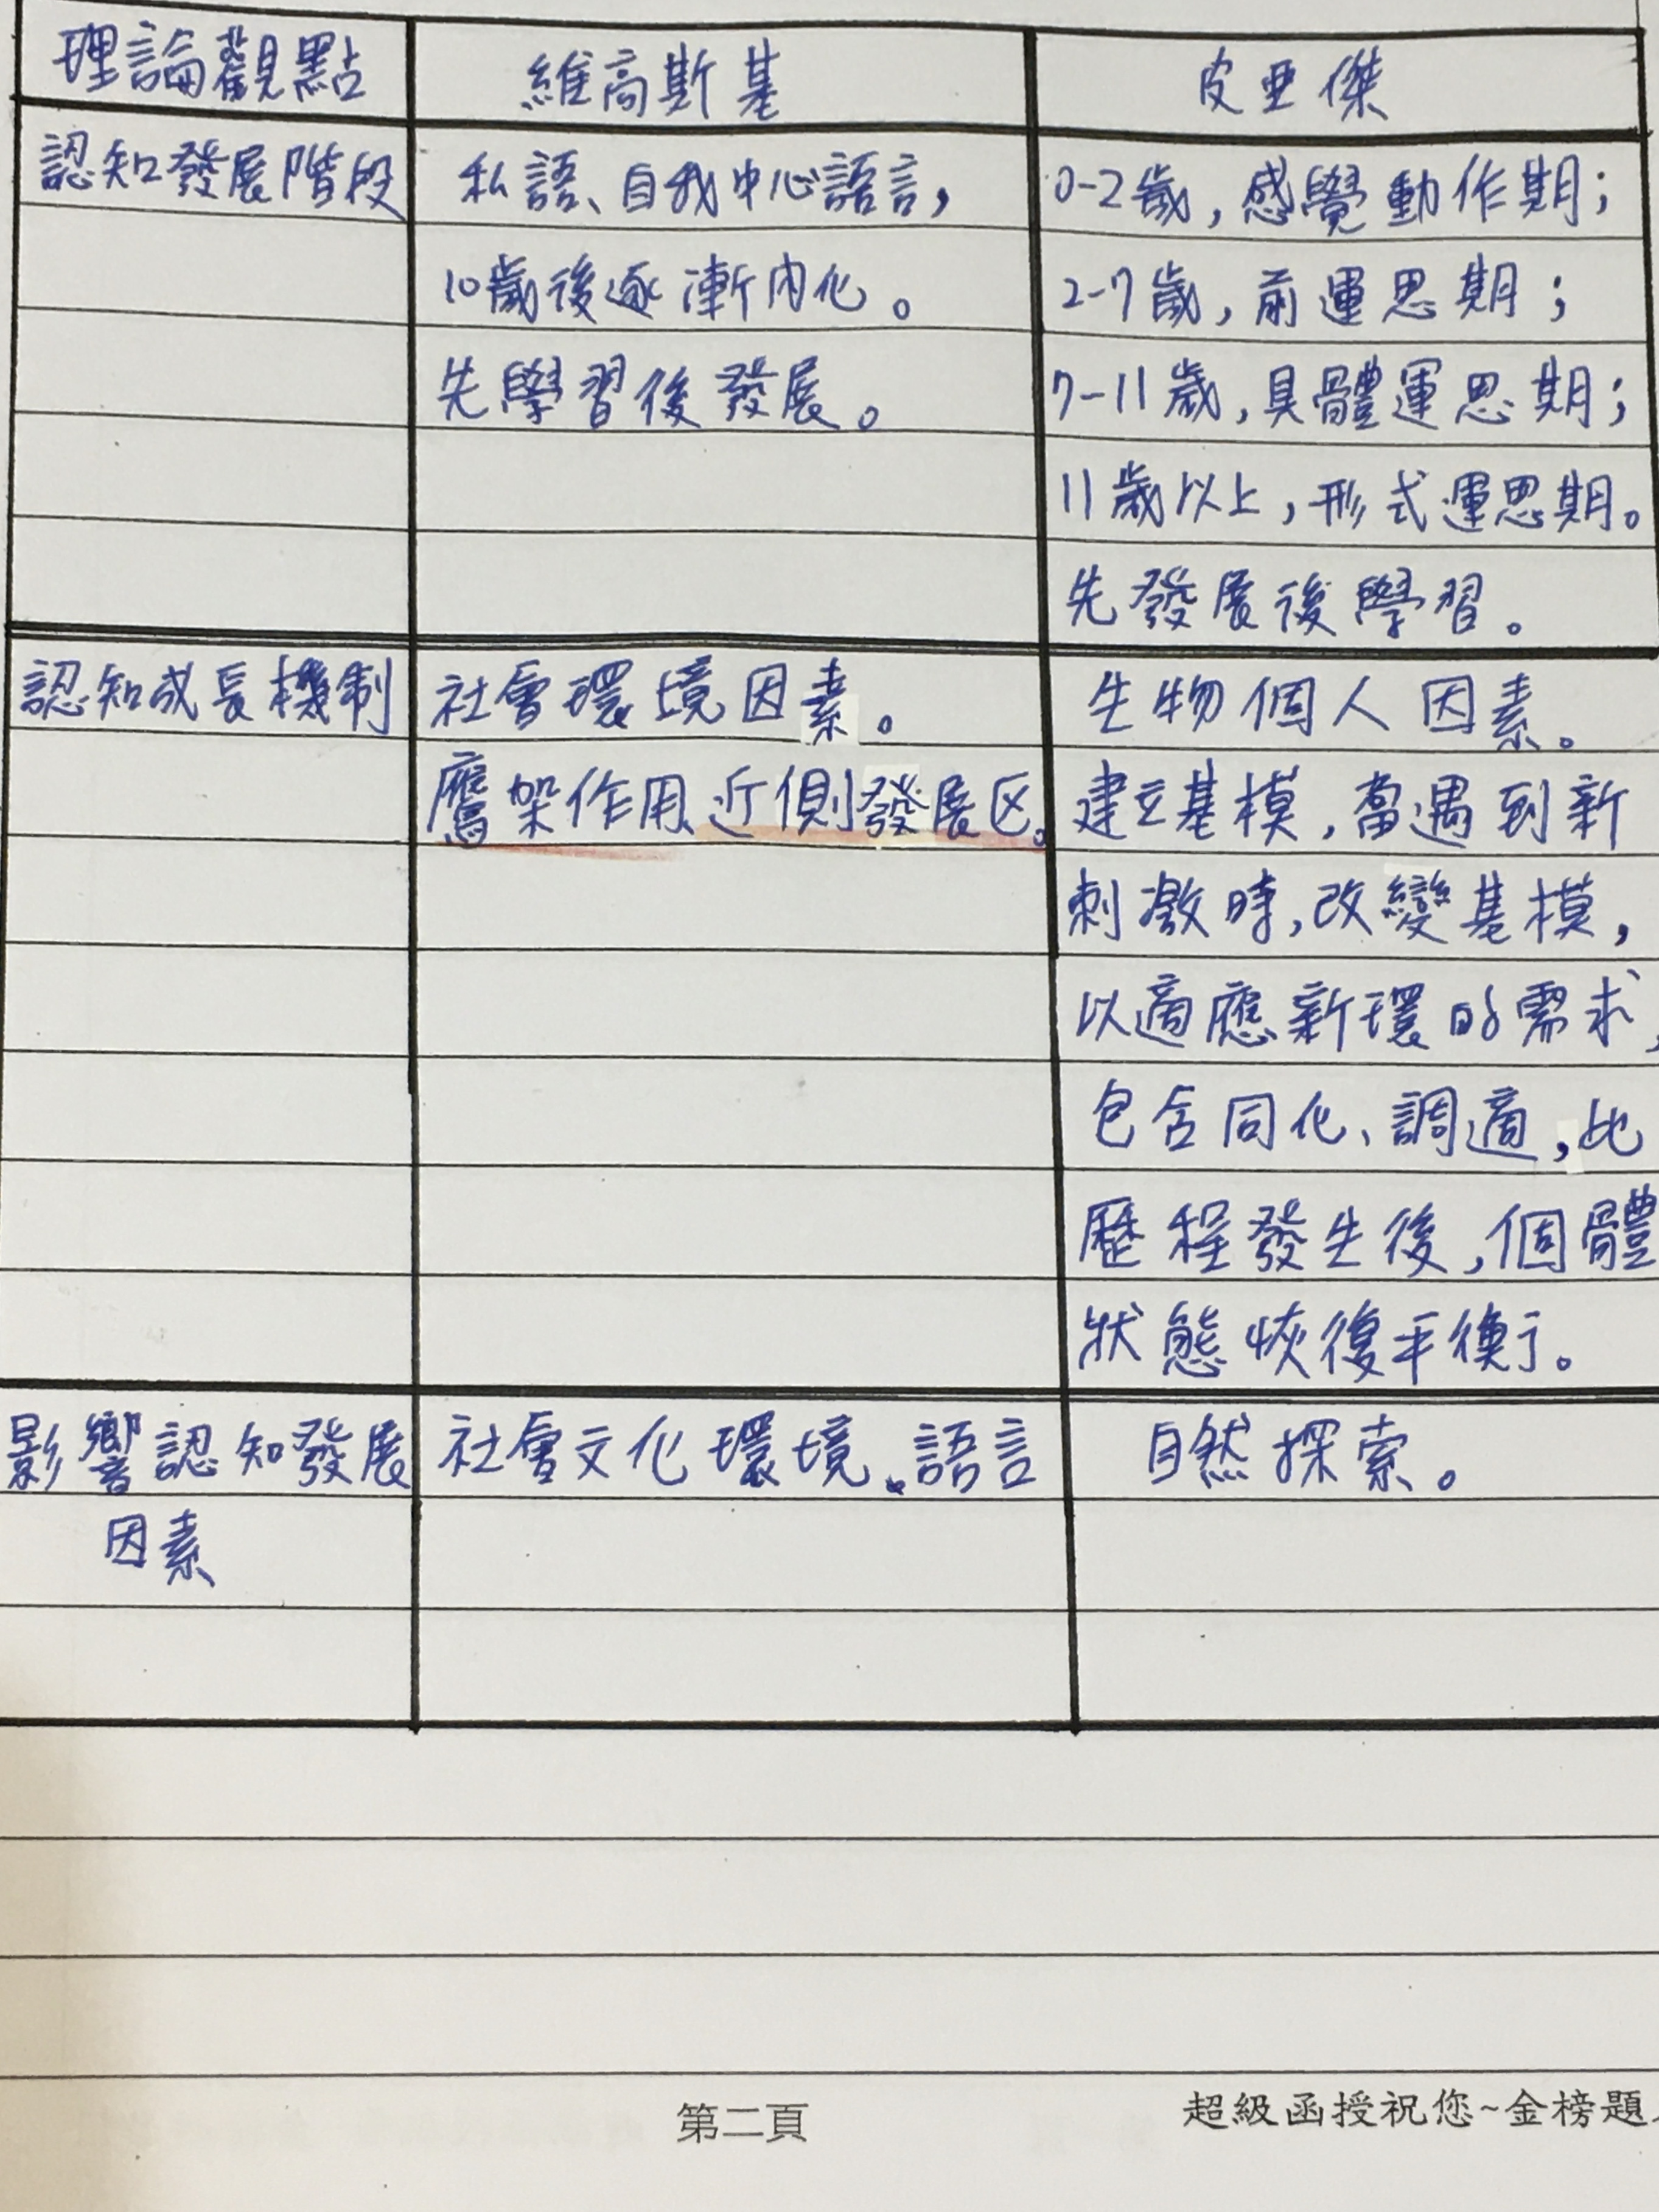 理論觀點 維高斯基 皮亜傑
認知發展階段 私語、自我中心語言， 0-2歲，感覺動作期；
10歲後逐漸內化。 2-7歲，前運思期；
先學習後發展。 7-11歲，具體運思期；
11歲以上，形式運思期。
先發展後學習。
認知成長機制 社會環境因素。 生物個人因素。
鷹架作用、近側發展区。 建立基模，當遇到新
刺激時，改變基模，
以適應新環的需求，
包含同化、調適，此
歷程發生後，個體
狀態恢復平衡。
影響認知發展 社會文化環境、語言 自然探索。
因素
第二頁
超級函授祝您~金榜題